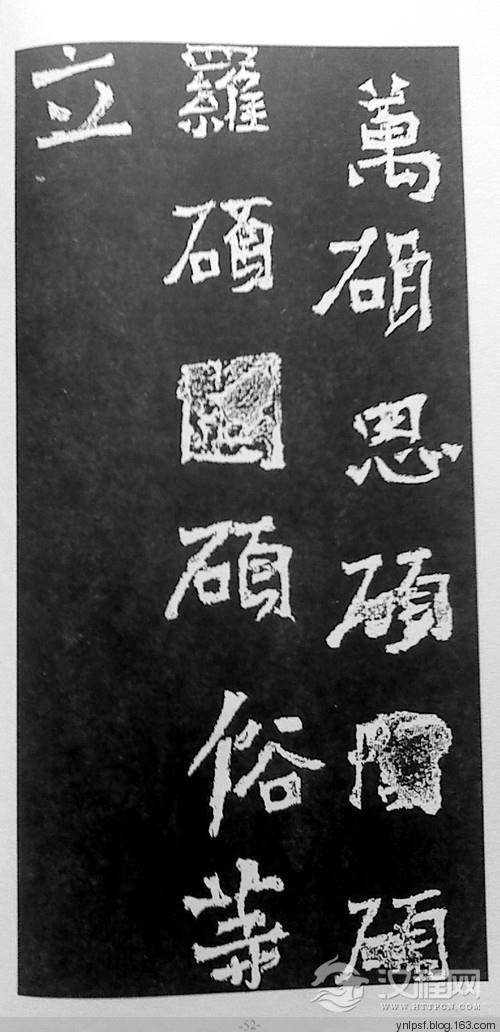 萬碩思碩碩
羅碩碩俗等
立
汉程网
WWW.HTTPCN.COM
-52-
ynlpsf.blog.163.com